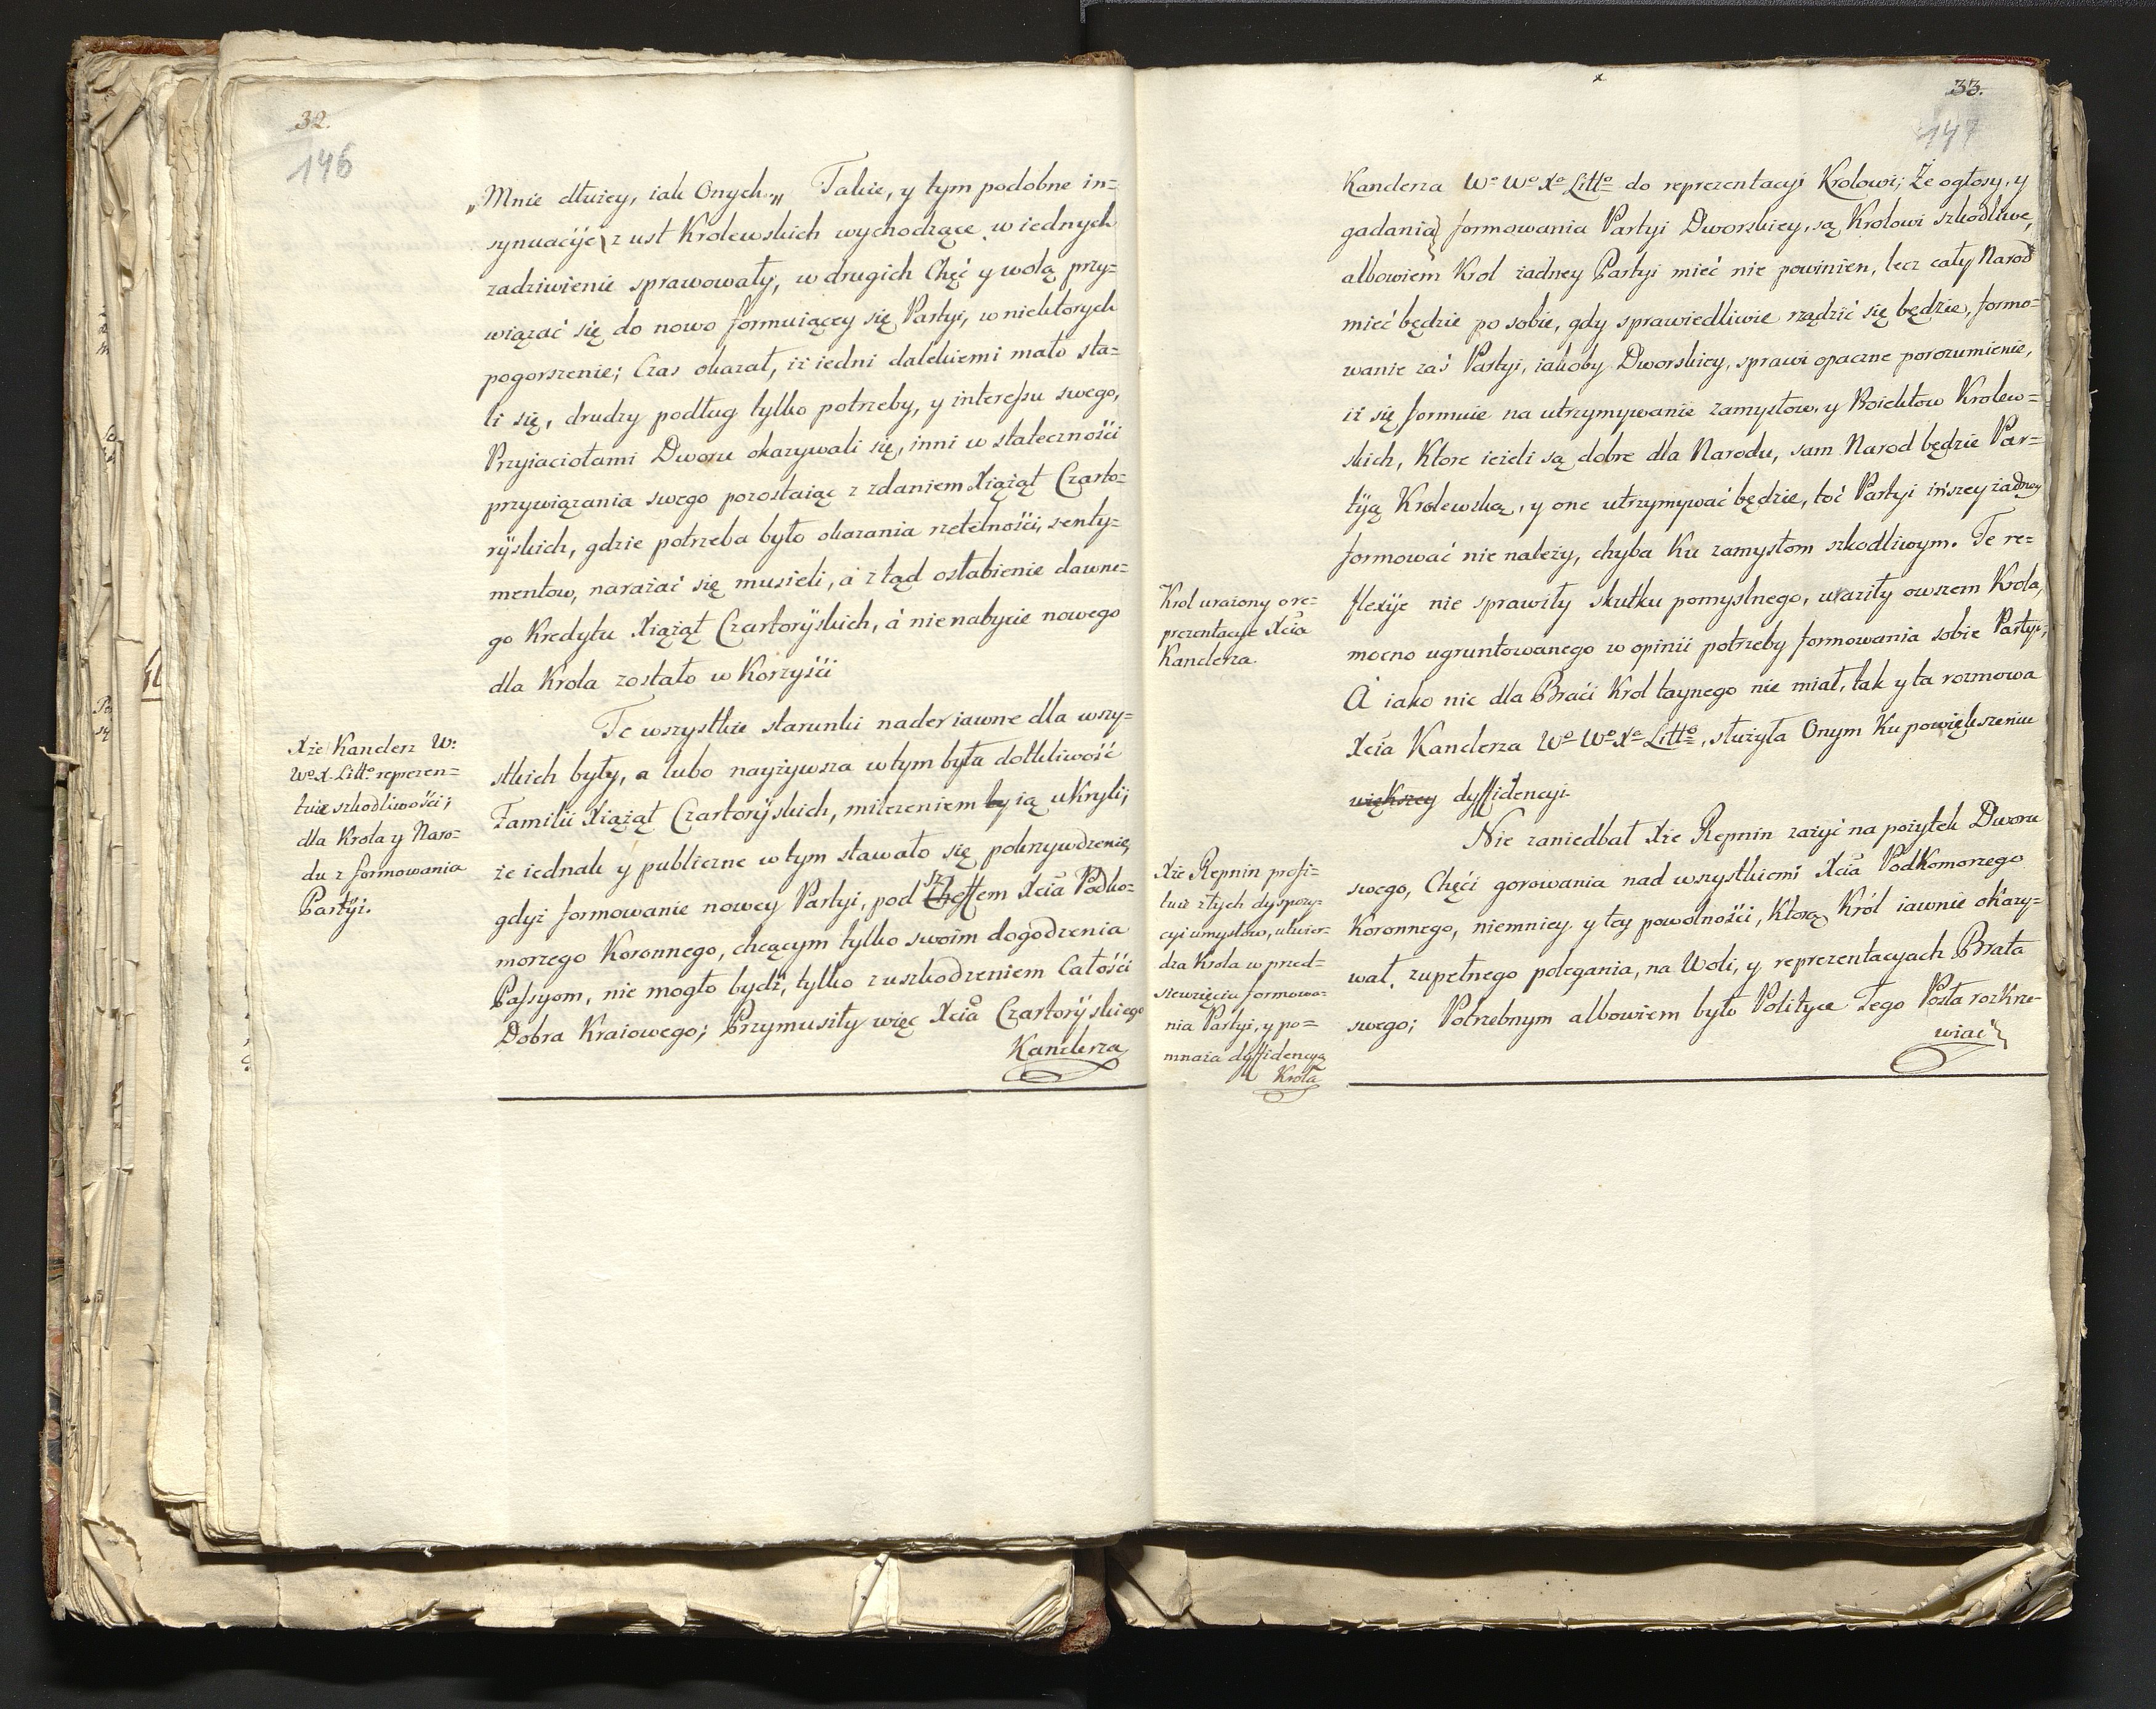 32.
146
„Mnie dłużey, iak Onych.„ Takie, y tym podobne in=
synuacÿe z ust Krolewskich wychodzące w iednych
zadziwienie sprawowały, w drugich Chęć y wolą przy=
wiązać się do nowo formuiącey się Partyi, w niektorych
pogorszenie; Czas okazał, iż iedni dalekiemi mało sta=
li się, drudzy podług tylko potrzeby, y interessu swego,
Przyiaciołami Dworu okazywali się, inni w stateczności
przywiązania swego pozostaiąc z zdaniem Xiążąt Czarto=
rÿskich, gdzie potrzeba było okazania rzetelności, senty=
mentow, narażać się musieli, a ztąd osłabienie dawne=
go Kredytu Xiążąt Czartorÿskich, á nienabycie nowego
dla Krola zostało w Korzyści
Te wszystkie starunki nader iawne dla wszy=
stkich były, a lubo nayżywsza w tym była dotkliwość
Familii Xiążąt Czartorÿskich, milczeniem by ią ukryli;
że iednak y publiczne w tym stawało się pokrzywdzenie,
gdyż formowanie nowey Partyi, pod Cheffem Xcia Podko=
sz
morzego Koronnego, chcącym tylko swoim dogodzenia
Passyom, nie mogło bydź, tylko z uszkodzeniem Całości
Dobra Kraiowego; Przymusiły więc Xcia CzartorÿskiegO
Kanclerza
Xże Kanclerz W:
Wo X. Litto reprezen=
tuie szkodliwości;
dla Krola y Naro=
du z formowania
Partÿi.
33.
147
Kanclerza Wo Wo Xo Litto do reprezentacyi Krolowi; Że ogłosy, y
gadania formowania Partyi Dworskiey, są Krolowi szkodliwe,
albowiem Krol żadney Partyi mieć nie powinien, lecz cały Narod
mieć będzie po sobie, gdy sprawiedliwie rządzić się będzie, formo=
wanie zaś Partyi, iakoby Dworskiey, sprawi opaczne porozumienie,
iż się formuie na utrzymywanie zamysłow, y Roiektow Krolew=
skich, Ktore ieżeli są dobre dla Narodu, sam Narod będzie Par=
tÿą Krolewską, y one utrzymywać będzie, toć Partyi inszey żadney
formować nie należy, chyba Ku zamysłom szkodliwym. Te re=
flexÿe nie sprawiły skutku pomyslnego, uraziły owszem Krola,
mocno ugruntowanego w opinii potrzeby formowania sobie Partyi;
A iako nic dla Braci Krol taynego nie miał, tak y ta rozmowa
Xcia Kanclerza Wo Wo Xo Litto, służyła Onym Ku powiększeniu
większey dyffidencyi
Nie zaniedbał Xże Repnin zażyć na pożytek Dworu
swego, Chęci gorowania nad wszystkiemi Xcia Podkomorzego
Koronnego, niemniey y tey powolności, Ktorą Król iawnie okazy=
wał, zupełnego polegania, na Woli, y reprezentacyach Brata
swego; Potrzebnym albowiem było Polityce Tego Posła rozKrze-
wiać
Krol urażony o re=
prezentacye Xcia
Kanclerza.
Xże Repnin profi=
tuie z tych dyspozy=
cyi umysłow, utwier=
dza Krola w przed=
siewzięciu formowa=
nia Partyi, y po=
mnaża dyffidencyą
Krola